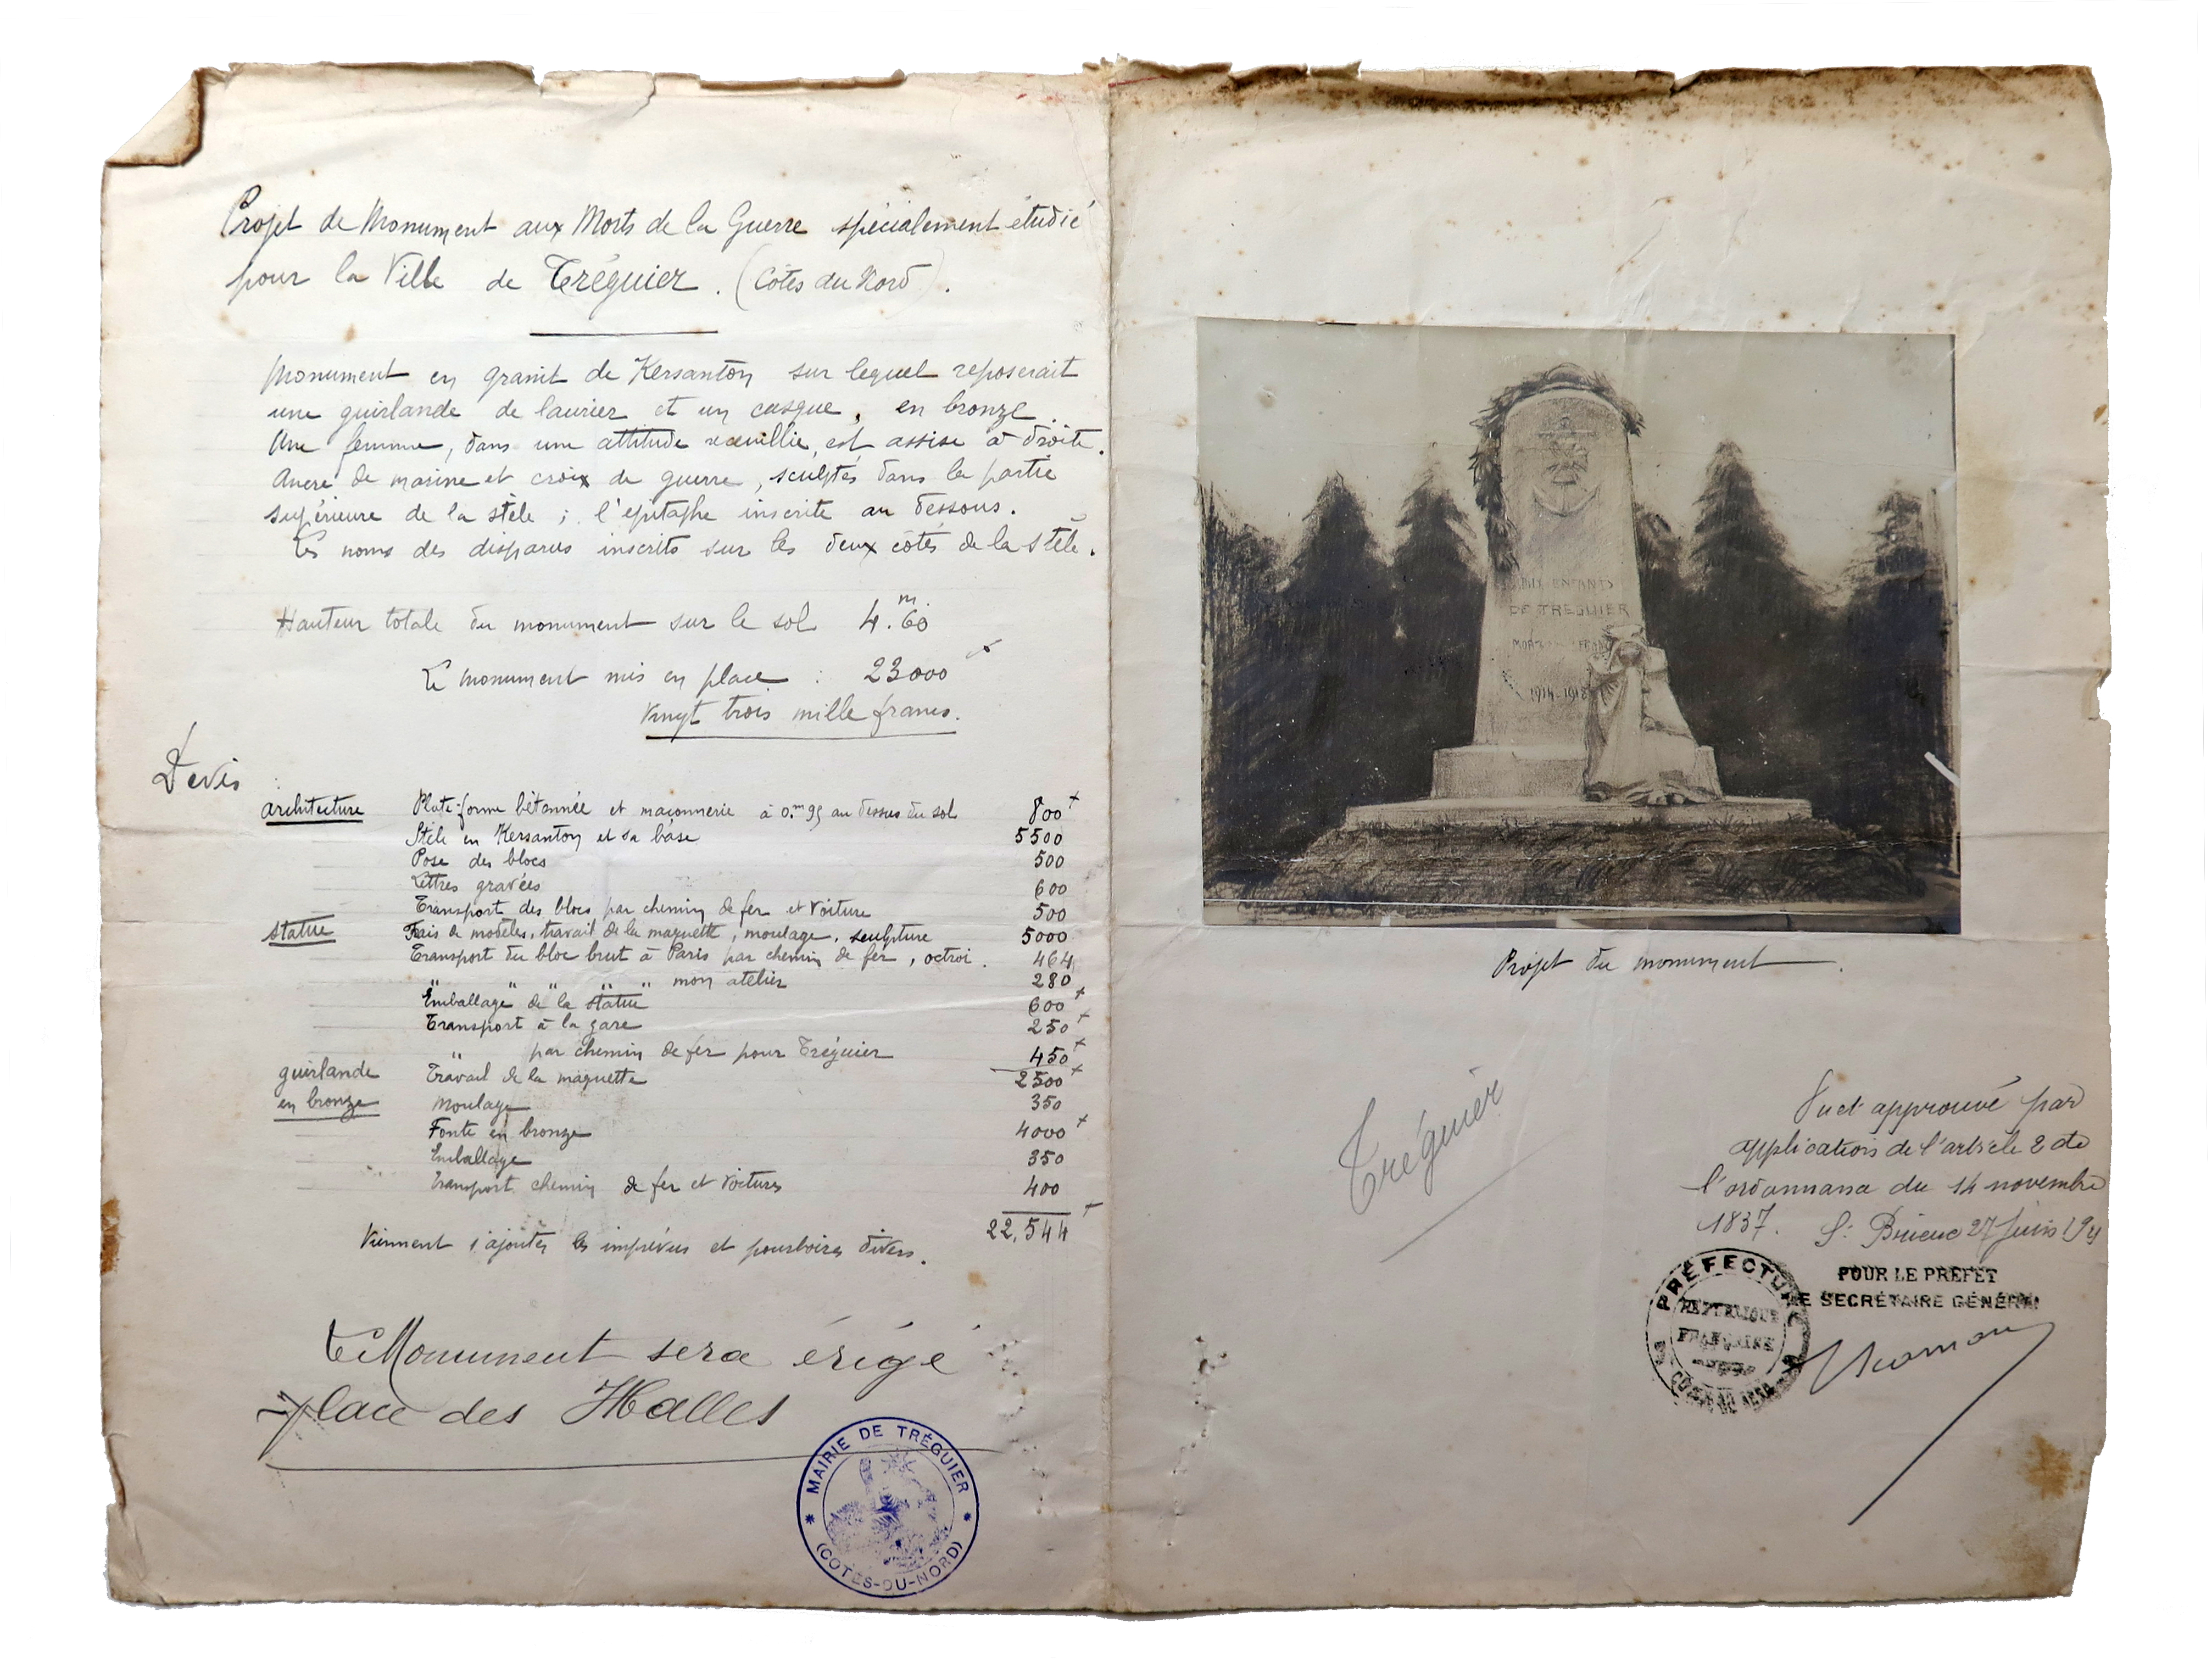 Projet de Monument aux Morts de la Guerre spécialement étudié
pour la Ville de Tréguier. (Côtes du Nord).
Monument en granit de Kersanton sur lequel reposerait
une guirlande de laurier et un casque, en bronze.
Une femme, dans une attitude recueillie, est assise à droite.
Ancre de marine et croix de guerre, sculptés dans la partie
supérieure de la stèle ; l'épitaphe inscrite au dessous.
Les noms des disparus inscrits sur les deux côtés de la stèle.
Hauteur totale du monument sur le sol 4.m60
Le monument mis en place : 23000
Vingt trois mille francs.
Devis :
architecture Plate-forme bétonnée et maçonnerie à 0.m95 au dessus du sol 800
Stèle en Kersanton et sa base 5500
Pose des blocs 500
Lettres gravées 600
Transport des blocs par chemin de fer et voiture 500
statue Frais de modèles, travail de la maquette, moulage, sculpture 5000
Transport du bloc brut à Paris par chemin de fer, octroi. 464
" " " " " mon atelier 280
Emballage de la statue 600
Transport à la gare 250
" par chemin de fer pour Tréguier 450
guirlande Travail de la maquette 2500
en bronze Moulage 350
Fonte en bronze 4000
Emballage 350
Transport chemin de fer et voitures 400
22,544
Viennent s'ajouter les imprévus et pourboires divers.
Le Monument sera érigé
place des Halles
MAIRIE DE TRÉGUIER
(CÔTES-DU-NORD)
ENFANTS
DE TREGUIER
1914-1918
Projet du monument
Tréguier
Vu et approuvé par
application de l'article 2 de
l'ordonnance du 14 novembre
1837. St Brieuc 27 Juin
PRÉFECTURE
RÉPUBLIQUE
FRANÇAISE
POUR LE PRÉFET
LE SECRÉTAIRE GÉNÉRAL